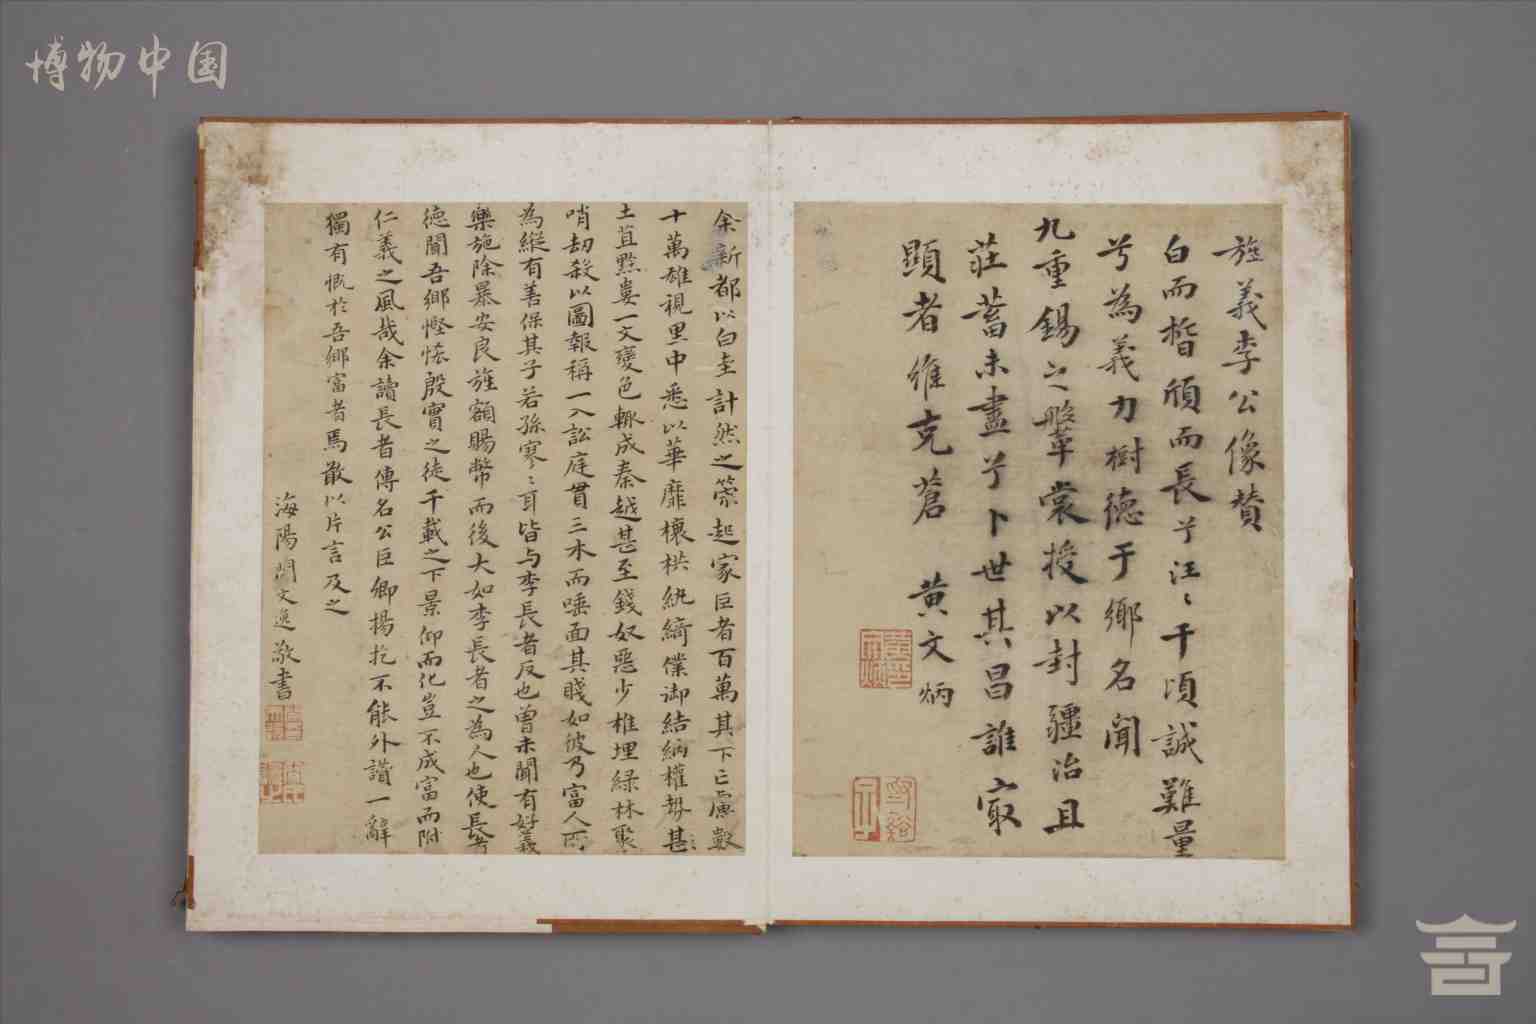 博物中国
旌義李公像贊
白而晳頎而長兮汪〻千頃誠難量
兮為義力樹德于鄉名聞
九重錫之鞶裳授以封疆治且
莊蓄未盡兮卜世其昌誰寂
顯者維克蒼 黃文炳
余新都以白圭計然之策起家巨者百萬其下亡慮數
十萬雄視里中悉以華靡榱栱紈綺僕御結納權勢甚〻
土苴黔婁一文變色輒成秦越甚至錢奴惡少椎埋綠林聚
哨刼殺以圖報稱一入訟庭貫三木而唾面其賤如彼乃富人所
為縱有善保其子若孫寥〻耳皆与李長者反也曾未聞有好義
樂施除暴安良旌額賜幣而後大如李長者之為人也使長者
德聞吾鄉慳恡殷實之徒千載之下景仰而化豈不成富而附
仁義之風哉余讀長者傳名公巨卿揚扢不能外讚一辭
獨有慨於吾鄉富者焉敢以片言及之
海陽閔文逸敬書